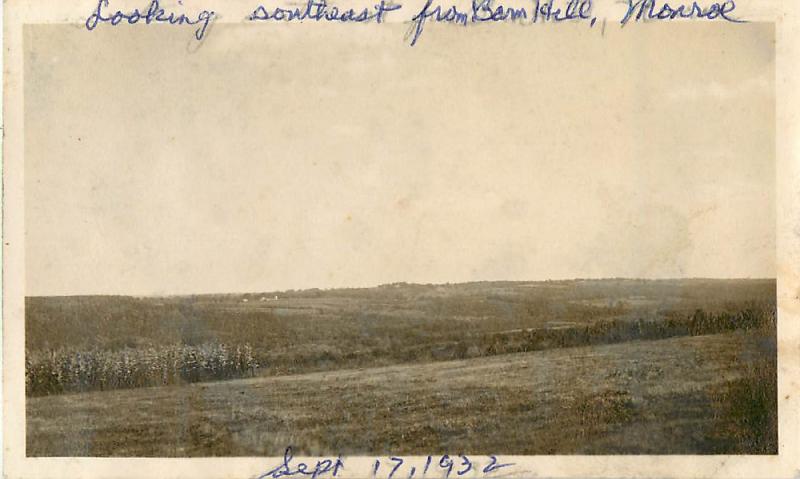 Looking southeast from Barn Hill, Monroe
Sept 17, 1932